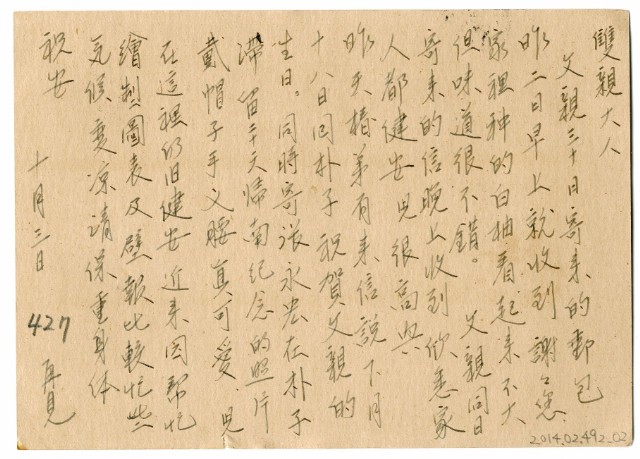 雙親大人
父親三十日寄来的郵包
昨二日早上就收到 謝謝您
家裡种的白柚看起来不大
但味道很不錯。 父親同日
寄来的信晚上收到 欣悉家
人都健安 児很高兴
昨天椿弟有来信說下月
十八日回朴子 祝賀父親的
生日。同時寄張永宏在朴子
滞留二十天帰南紀念的照片
戴帽子手义腰真可爱 児
在這裡仍旧健安 近来因幫忙
繪製圖表及壁報比較忙些
気候変凉请保重身体
祝安
十月三日 427 再見
2014.02.492_02